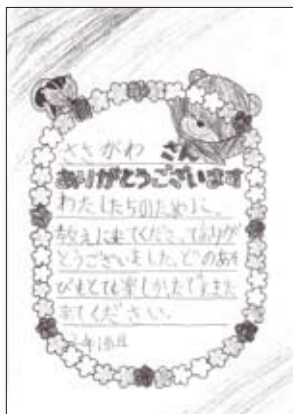 ささがわ さん
ありがとうございます
わたしたちのために、
教えに来てくださってありが
とうございました。どのあそ
びもとても楽しかったです。また
来てください。